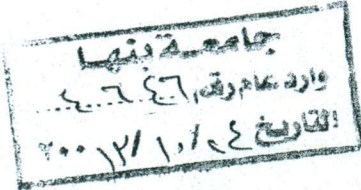 جامعة بنها
وارد عام رقم ٤٠٦٤٦
التاريخ ٢٤/١٠/